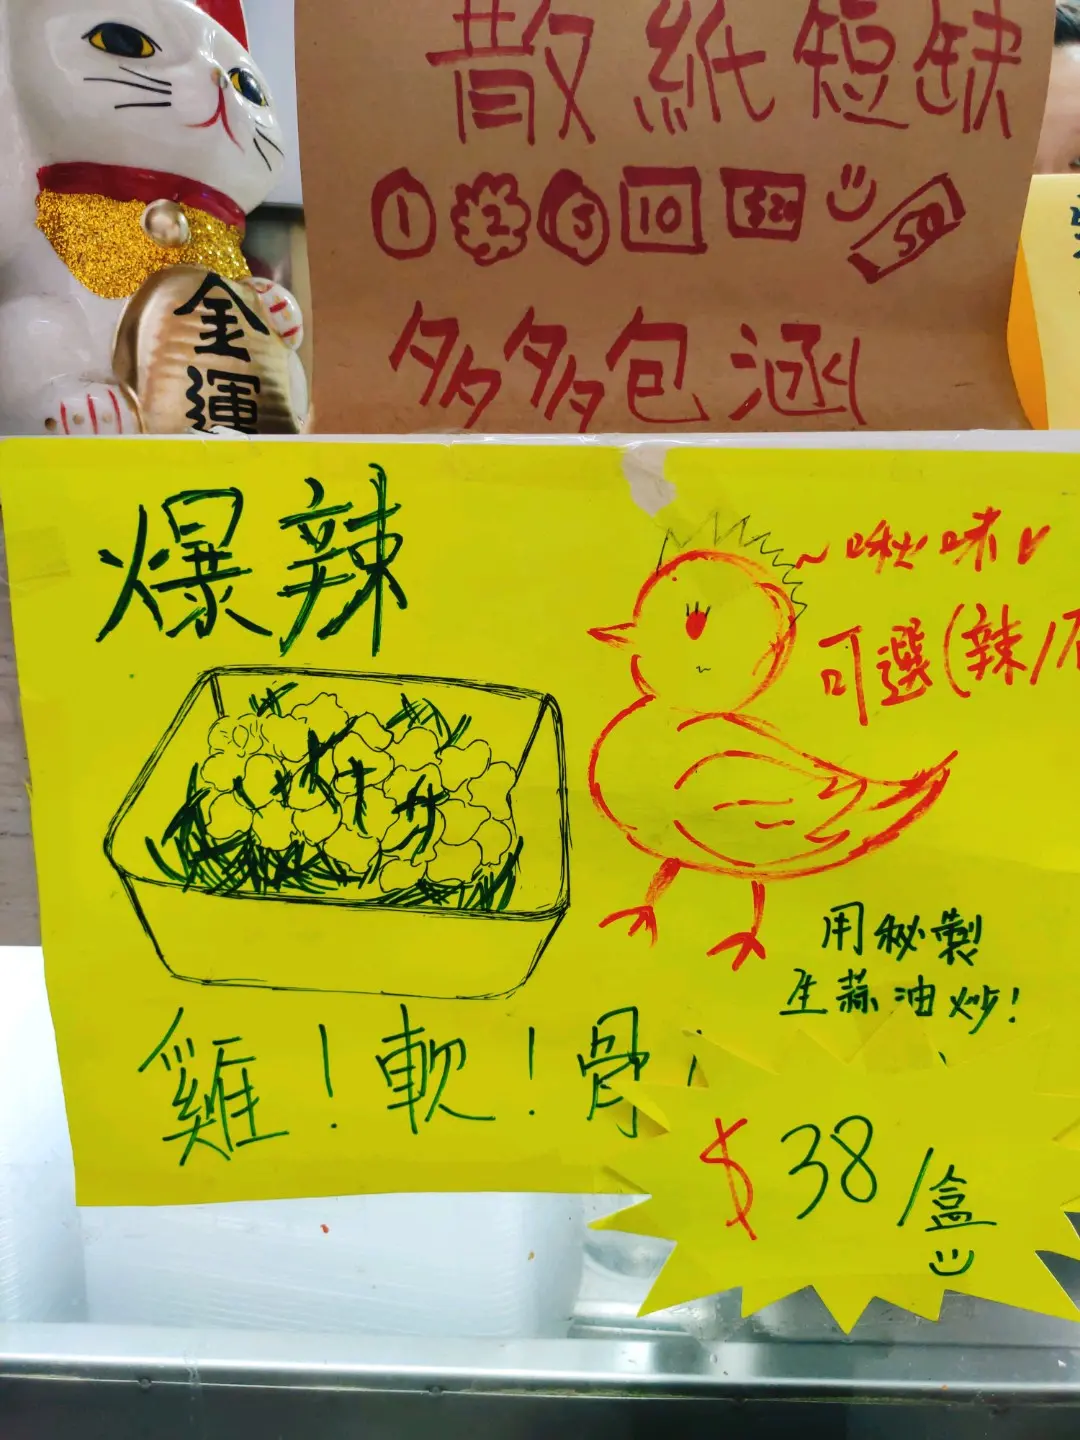 散紙短缺
1 2 5 10 $20 50
多多包涵
金運
爆辣
~啾味
可選(辣/
用秘製
生蒜油炒!
雞!軟!骨!
$38/盒